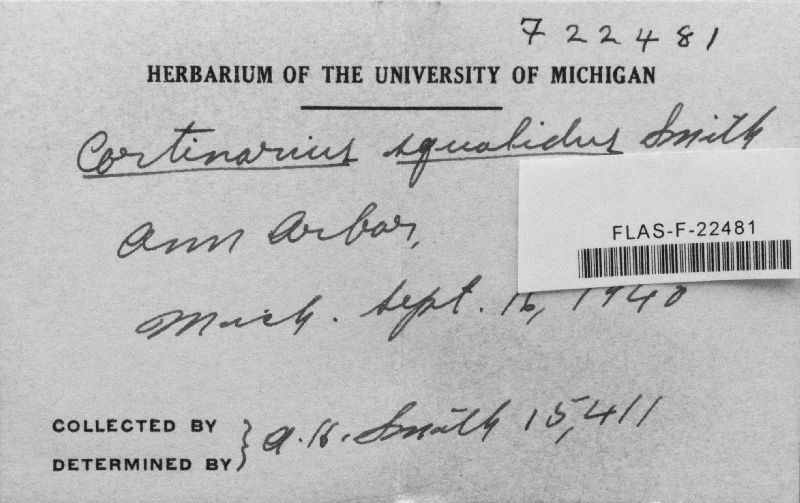 F22481
HERBARIUM OF THE UNIVERSITY OF MICHIGAN
Cortinarius squalidus Smith
FLAS-F-22481
Ann Arbor,
Mich. Sept. 16, 1940
COLLECTED BY
DETERMINED BY } A. H. Smith 15,411